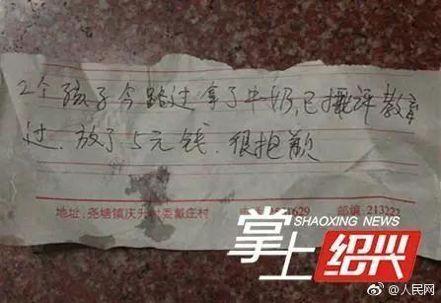 2个孩子今路过拿了牛奶,已批评教育
过.放了5元钱.很抱歉
地址:尧塘镇庆 村委戴庄村 1629 邮编:213222
SHAOXING NEWS
掌上绍兴
@人民网